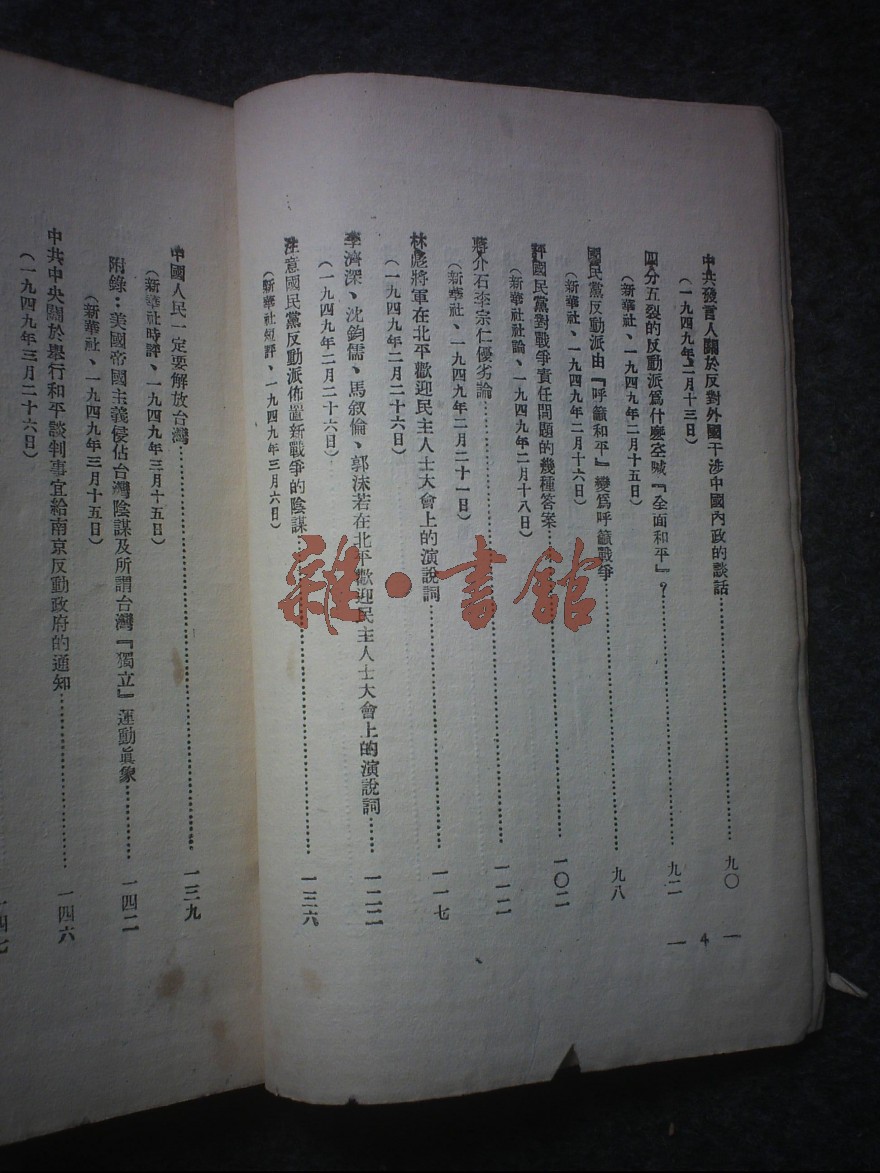 中共發言人關於反對外國干涉中國內政的談話…………九〇
(一九四九年二月十三日)
四分五裂的反動派爲什麽空喊『全面和平』?…………九二
(新華社、一九四九年二月十五日)
國民黨反動派由『呼籲和平』變爲呼籲戰爭…………九八
(新華社、一九四九年二月十六日)
評國民黨對戰爭責任問題的幾種答案…………一〇二
(新華社社論、一九四九年二月十八日)
蔣介石李宗仁優劣論…………一一二
(新華社、一九四九年二月二十一日)
林彪將軍在北平歡迎民主人士大會上的演說詞…………一一七
(一九四九年二月二十六日)
李濟深、沈鈞儒、馬叙倫、郭沫若在北平歡迎民主人士大會上的演說詞……一二二
(一九四九年二月二十六日)
注意國民黨反動派佈置新戰爭的陰謀…………一三六
(新華社短評、一九四九年三月六日)
— 4 —
中國人民一定要解放台灣…………一三九
(新華社時評、一九四九年三月十五日)
附錄:美國帝國主義侵佔台灣陰謀及所謂台灣『獨立』運動眞象…………一四二
(新華社、一九四九年三月十五日)
中共中央關於舉行和平談判事宜給南京反動政府的通知…………一四六
(一九四九年三月二十六日)
一四七
雜·書館